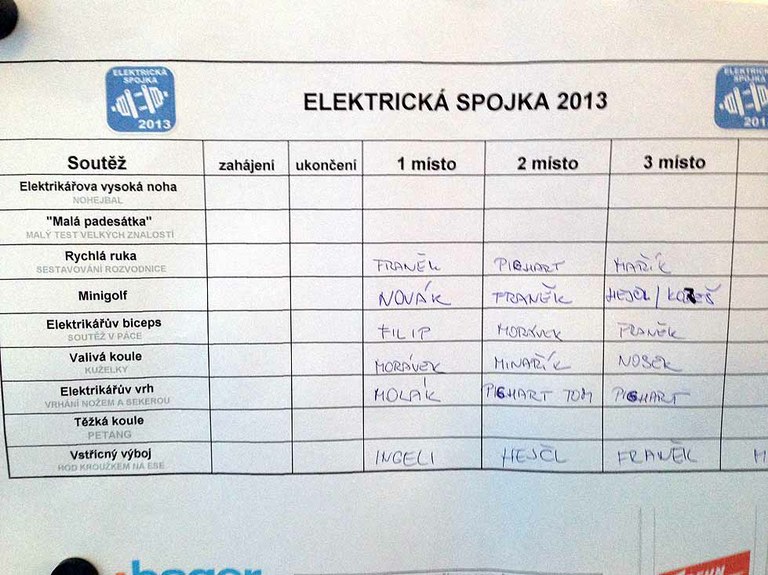 ELEKTRICKÁ SPOJKA 2013
ELEKTRICKÁ SPOJKA 2013
Soutěž zahájeni ukončeni 1 místo 2 místo 3 místo
Elektrikářova vysoká noha
NOHEJBAL
"Malá padesátka"
MALÝ TEST VELKÝCH ZNALOSTÍ
Rychlá ruka FRANĚK PIGHART MAŘÍK
SESTAVOVÁNÍ ROZVODNICE
Minigolf NOVÁK FRANĚK HEJČL / KOREŠ
Elektrikářův biceps FILIP MORÁVEK FRANĚK
SOUTĚŽ V PÁCE
Valivá koule MORÁVEK MINAŘÍK NOSEK
KUŽELKY
Elektrikářův vrh MOLÁK PIGHART TOM PIGHART
VRHÁNÍ NOŽEM A SEKEROU
Těžká koule
PETANG
Vstřícný výboj INGELI HEJČL FRANĚK
HOD KROUŽKEM NA ESE
hager